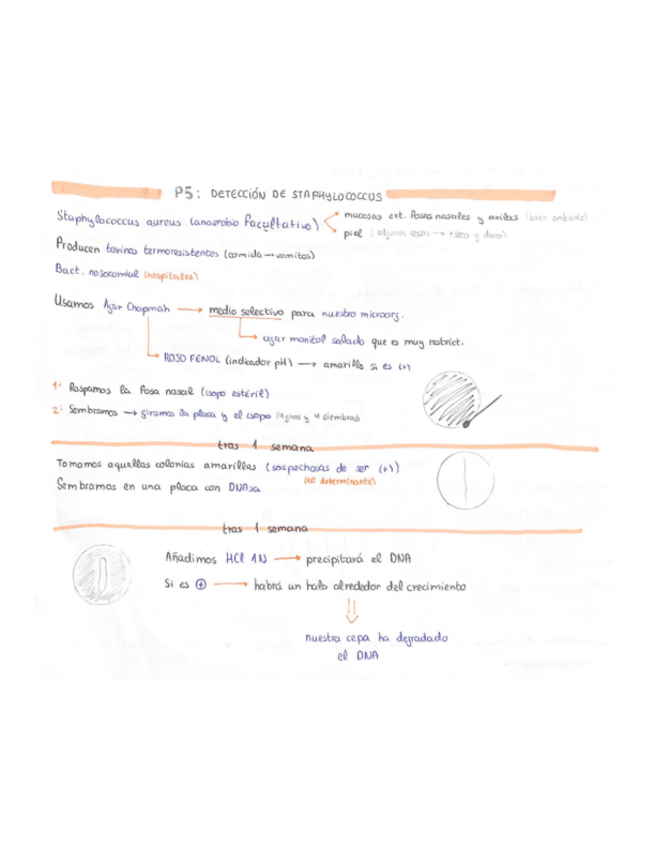 P5: DETECCIÓN DE STAPHYLOCOCCUS
Staphylococcus aureus (anaerobio facultativo)
mucosas ext. fosas nasales y axilas (buen ambiente)
piel (algunas cepas → +seco y duro)
Producen toxinas termoresistentes (comida → vomitos)
Bact. nosocomial (hospitales)
Usamos Agar Chapman → medio selectivo para nuestro microorg.
agar manitol salado que es muy restrict.
ROJO FENOL (indicador pH) → amarillo si es (+)
1º Raspamos la fosa nasal (isopo estéril)
2º Sembramos → giramos la placa y el isopo (4 giros y 4 siembras)
tras 1 semana
Tomamos aquellas colonias amarillas (sospechosas de ser (+))
(NO determinante)
Sembramos en una placa con DNAsa
tras 1 semana
Añadimos HCl 1N → precipitará el DNA
Si es ⊕ → habrá un halo alrededor del crecimiento
nuestra cepa ha degradado
el DNA